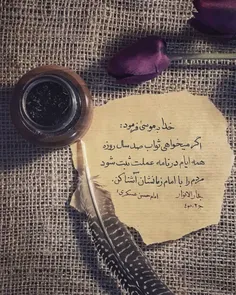 خدا به موسی فرمود:
اگر میخواهی ثواب صد سال روزه
همه ایام در نامه عملت ثبت شود
مردم را با امام زمانشان آشنا کن.
بحارالانوار
امام حسن عسکری
ج۲ ص